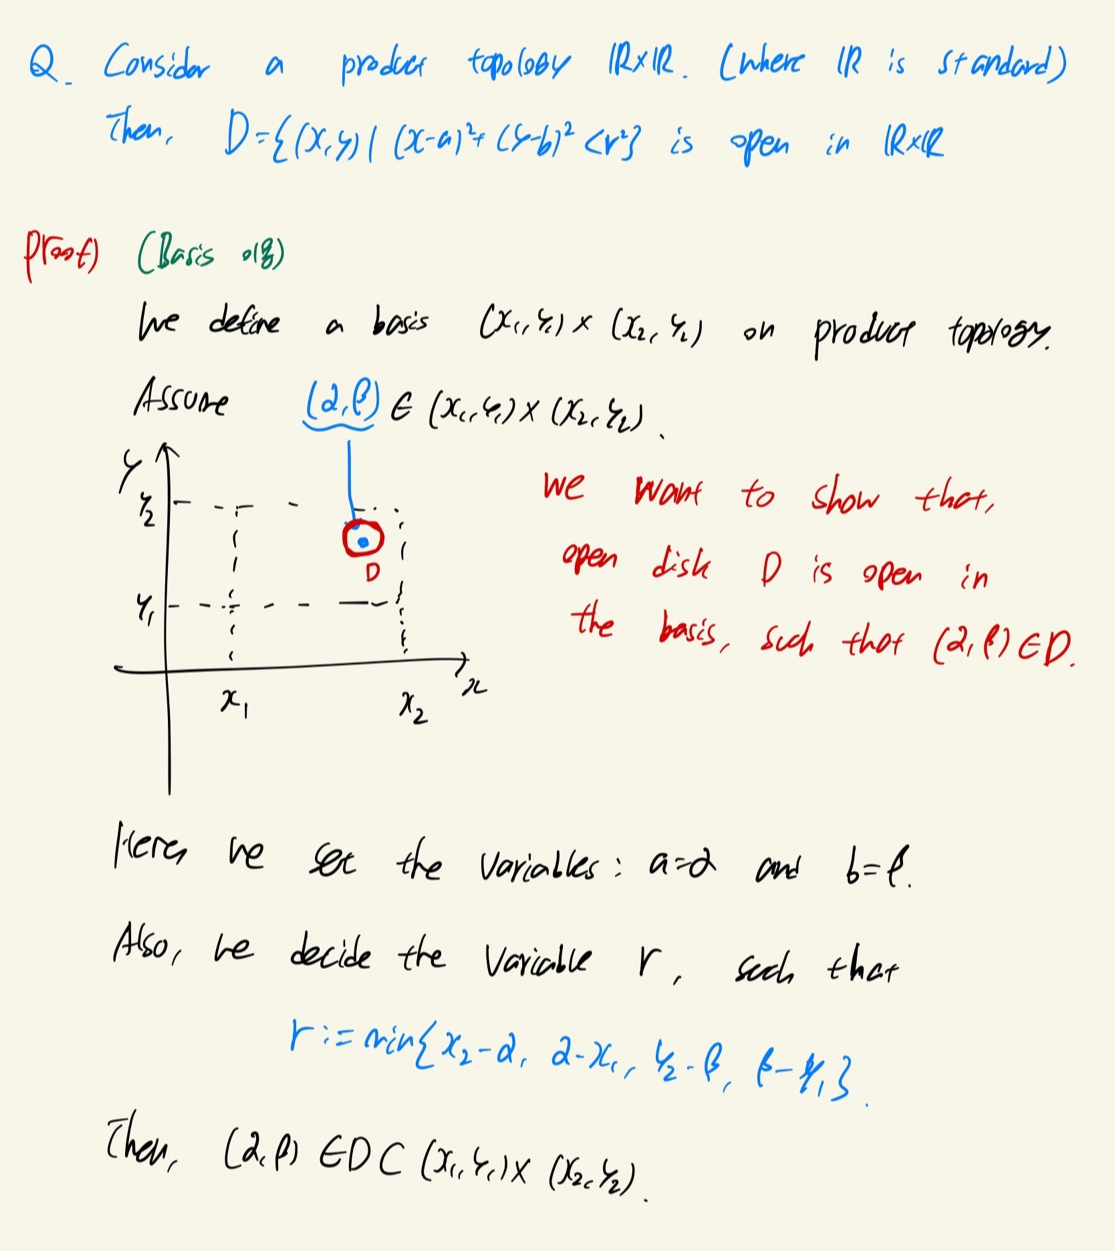 Q. Consider a product topology ℝ×ℝ. (where ℝ is standard)
Then, D={(x,y)| (x-a)²+(y-b)²<r²} is open in ℝ×ℝ
proof) (Basis 이용)
We define a basis (x₁,y₁)×(x₂,y₂) on product topology.
Assume (α,β)∈(x₁,y₁)×(x₂,y₂).
y
y₂
D
y₁
x
x₁
x₂
we want to show that,
open disk D is open in
the basis, such that (α,β)∈D.
Here, we set the variables: a=α and b=β.
Also, we decide the variable r, such that
r:=min{x₂-α, α-x₁, y₂-β, β-y₁}.
Then, (α,β)∈D⊂(x₁,y₁)×(x₂,y₂).